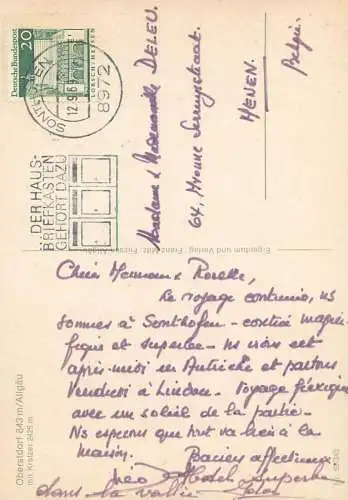 Deutsche Bundespost
20
LORSCH-HESSEN
SONTHOFEN
12.9.69
8972
...DER HAUS-
BRIEFKASTEN
GEHÖRT DAZU
Madame & Mademoiselle DELEU.
64, Yvonne
MENEN.
Belgie.
Eigentum und Verlag: Franz Milz, Füssen-Allgäu
Oberstdorf 843 m/Allgäu
mit Kratzer 2420 m
Chère Maman &
Le voyage continue, ns
sommes à Sonthofen - contrée magni-
fique et superbe - ns irons cet
après-midi en Autriche et partons
Vendredi à Lindau. Voyage
avec un soleil de la partie.
Ns espérons que tout va bien à la
maison.
Baisers affectueux
Hotel superbe
dans la vallée